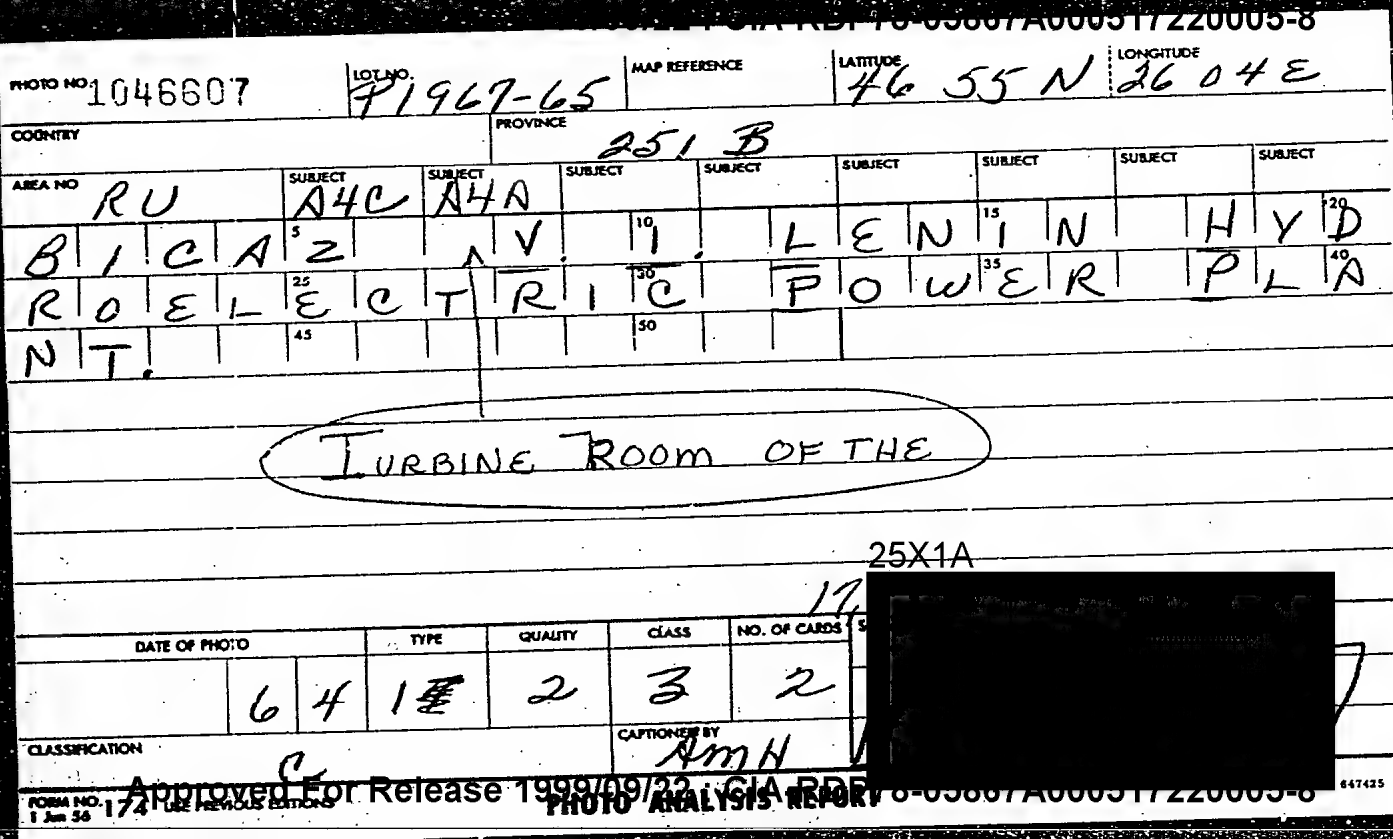 PHOTO NO 1046607 LOT NO. P1967-65 MAP REFERENCE LATITUDE 46 55 N LONGITUDE 26 04 E
COUNTRY PROVINCE 251 B
AREA NO RU SUBJECT A4C SUBJECT A4A SUBJECT SUBJECT SUBJECT SUBJECT SUBJECT SUBJECT
5 10 15 20
BICAZ ^ V. I. LENIN HYD
25 30 35 40
ROELECTRIC POWER PLA
45 50
NT.
TURBINE ROOM OF THE
25X1A
17,
DATE OF PHOTO TYPE QUALITY CLASS NO. OF CARDS S
64 1 2 3 2
CLASSIFICATION C CAPTIONED BY AMH
Approved For Release 1999/09/22 : CIA-RDP78-03867A000517220005-8
FORM NO. 174 USE PREVIOUS EDITIONS PHOTO ANALYSIS REPORT 647425
1 Jun 56